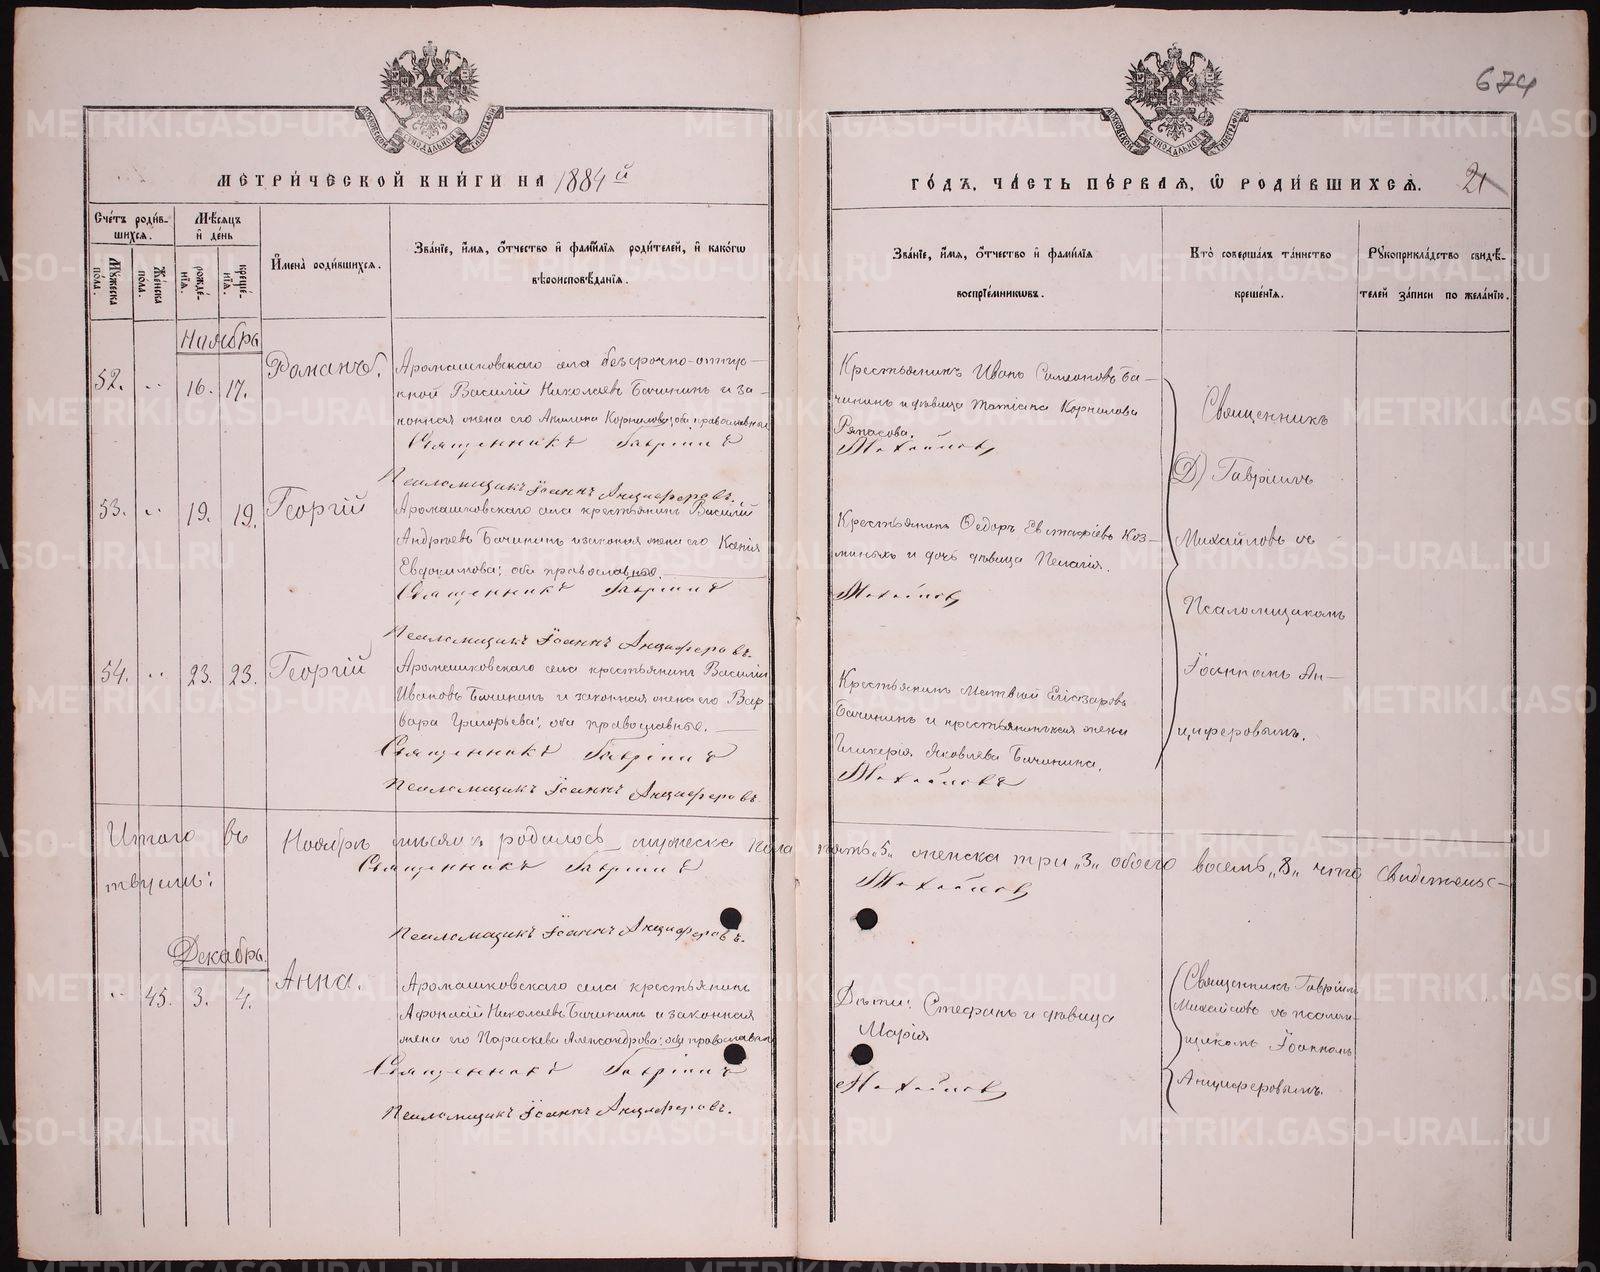 674
МЕТРИЧЕСКОЙ КНИГИ НА 1884й
ГОДЪ, ЧАСТЬ ПЕРВАЯ, Ѡ РОДИВШИХСЯ.
21
Счетъ родившихся.
Мѣсяцъ и день
Мужеска пола.
Женска пола.
рожденія.
крещенія.
Имена родившихся.
Званіе, имя, отчество и фамилія родителей, и какого
вѣроисповѣданія.
Званіе, имя, отчество и фамилія
воспріемниковъ.
Кто совершалъ таинство
крещенія.
Рукоприкладство свидѣ-
телей записи по желанію.
Ноябрь
52. „ 16. 17. Романъ.
Аромашковскаго села безсрочно-отпу-
кной Василій Николаевъ Бачининъ и за-
конная жена его Акилина Корнилова; оба православные
Священникъ Гавріилъ Михайловъ
Псаломщикъ Іоаннъ Анциферовъ.
Крестьянинъ Иванъ Симеоновъ Ба-
чининъ и дѣвица Татіана Корнилова
Ряпасова.
53. „ 19. 19. Георгій
Аромашковскаго села крестьянинъ Василій
Андреевъ Бачининъ и законная жена его Ксенія
Евдокимова; оба православные.
Священникъ Гавріилъ Михайловъ
Псаломщикъ Іоаннъ Анциферовъ.
Крестьянинъ Ѳедоръ Евстафіевъ Коз-
миныхъ и дочь дѣвица Пелагія.
54. „ 23. 23. Георгій
Аромашковскаго села крестьянинъ Василій
Ивановъ Бачининъ и законная жена его Вар-
вара Григорьева; оба православные.
Священникъ Гавріилъ Михайловъ
Псаломщикъ Іоаннъ Анциферовъ.
Крестьянинъ Матвій Еліазаровъ
Бачининъ и крестьянинская жена
Гликерія Яковлева Бачинина.
Священникъ
Гавріилъ
Михайловъ съ
Псаломщикомъ
Іоанномъ Ан-
циферовымъ.
Итого въ Ноябрѣ мѣсяцѣ родилось мужеска пола пять „5„ женска три „3„ обоего восемь „8„ что свидѣтельс-
твуемъ:
Священникъ Гавріилъ Михайловъ
Псаломщикъ Іоаннъ Анциферовъ.
Декабрь.
„ 45. 3. 4. Анна.
Аромашковскаго села крестьянинъ
Афонасій Николаевъ Бачининъ и законная
жена его Параскева Александрова; оба православные
Священникъ Гавріилъ Михайловъ
Псаломщикъ Іоаннъ Анциферовъ.
Дѣти: Стефанъ и дѣвица
Марія
Священникъ Гавріилъ
Михайловъ съ псалом-
щикомъ Іоанномъ
Анциферовымъ.
METRIKI.GASO-URAL.RU